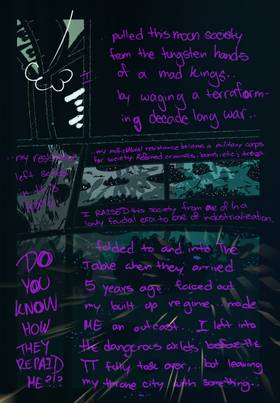 I pulled this moon society
from the tungsten hands
of a mad kings..
by waging a terraform-
ing decade long war..
my resistance
left
in
my multiplanal resistance became a military corps
for society. Reformed criminals, bums, etc; troops
I RAISED this society from one of in a
lowly feudal era to one of industrialization.
DO
YOU
KNOW
HOW
THEY
REPAID
ME?!?
I folded to and into The
Table when they arrived
5 years ago. forced out
my built up regime, made
ME an outcast... I left into
the dangerous wilds, before the
TT fully take over,.. but leaving
my throne city with something...